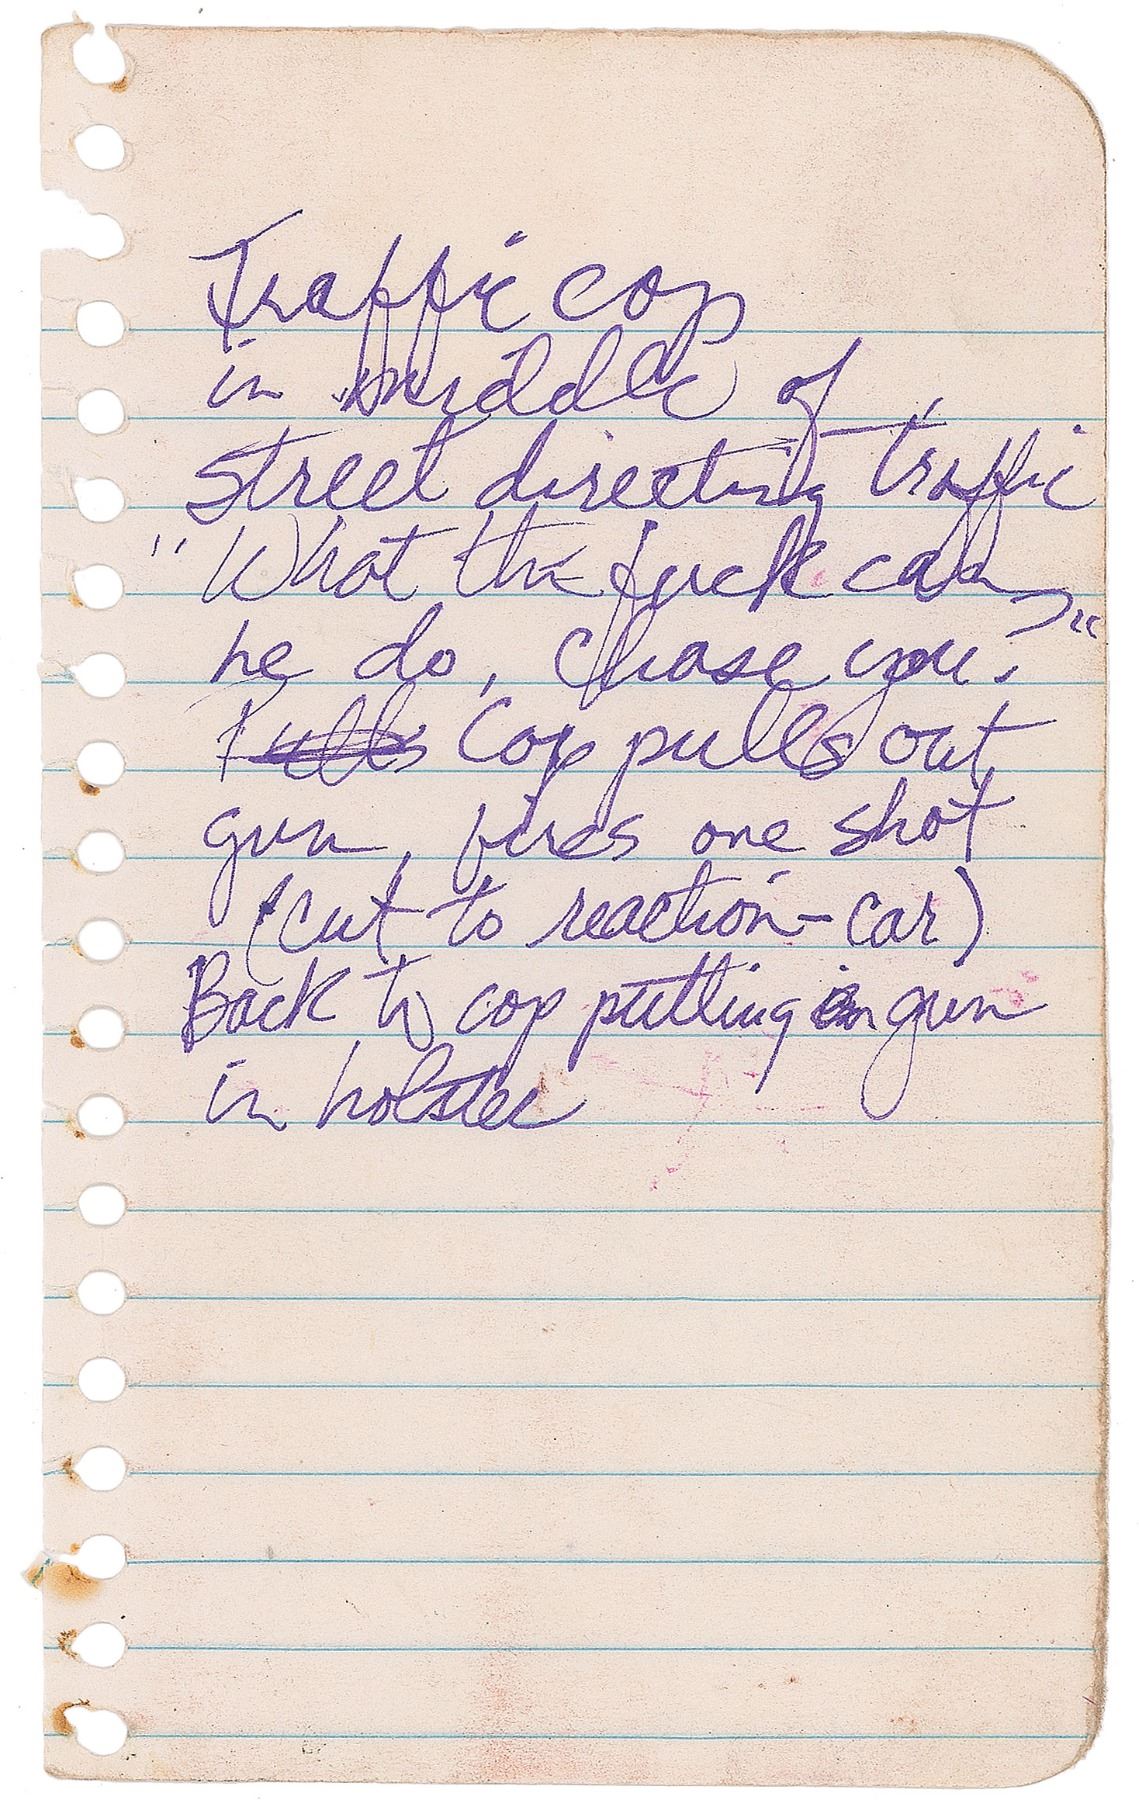 Traffic cop
in middle of
street directing traffic
"What the fuck can
he do, chase you?"
Pulls Cop pulls out
gun, fires one shot
(cut to reaction - car)
Back to cop putting gun
in holster